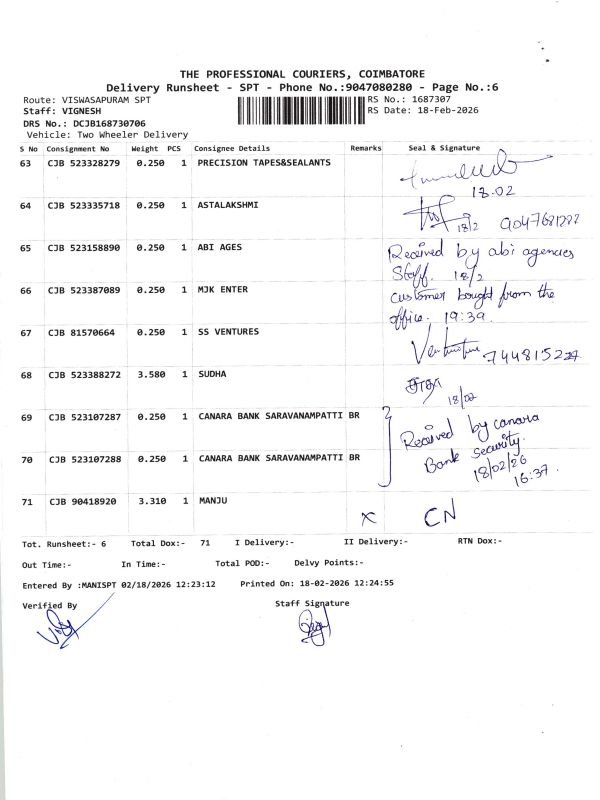 THE PROFESSIONAL COURIERS, COIMBATORE
Delivery Runsheet - SPT - Phone No.:9047080280 - Page No.:6
Route: VISWASAPURAM SPT
RS No.: 1687307
Staff: VIGNESH
RS Date: 18-Feb-2026
DRS No.: DCJB168730706
Vehicle: Two Wheeler Delivery
S No Consignment No Weight PCS Consignee Details Remarks Seal & Signature
63 CJB 523328279 0.250 1 PRECISION TAPES&SEALANTS
18.02
64 CJB 523335718 0.250 1 ASTALAKSHMI
18/2
65 CJB 523158890 0.250 1 ABI AGES Received by abi agencies
Staff. 18/2
66 CJB 523387089 0.250 1 MJK ENTER customer bought from the
office. 19:39
67 CJB 81570664 0.250 1 SS VENTURES
68 CJB 523388272 3.580 1 SUDHA
18/02
69 CJB 523107287 0.250 1 CANARA BANK SARAVANAMPATTI BR Received by canara
70 CJB 523107288 0.250 1 CANARA BANK SARAVANAMPATTI BR Bank security.
18/02/26
16:37.
71 CJB 90418920 3.310 1 MANJU x CN
Tot. Runsheet:- 6 Total Dox:- 71 I Delivery:- II Delivery:- RTN Dox:-
Out Time:- In Time:- Total POD:- Delvy Points:-
Entered By :MANISPT 02/18/2026 12:23:12 Printed On: 18-02-2026 12:24:55
Verified By Staff Signature